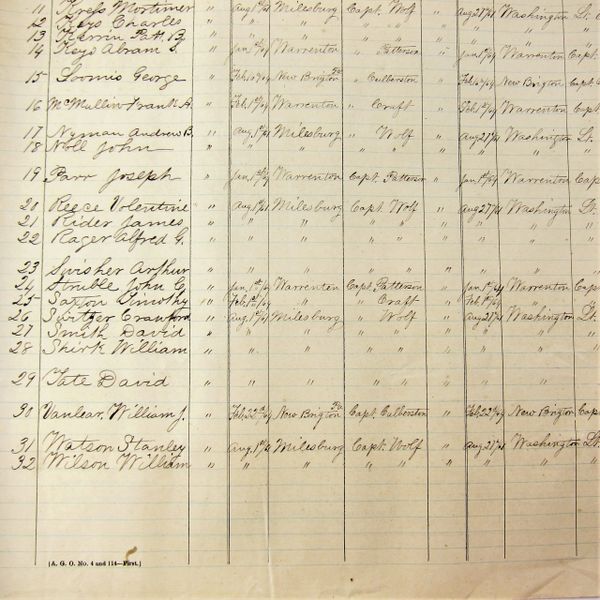 11 Kress Mortimer " Aug 1st/61 Milesburg Capt. Wolf " Aug 27/61 Washington Lt. C
12 Keys Charles " " " " " " " " "
13 Kerrin Patt. B. " " " " " " " " "
14 Keys Abram S. " Jan 1st/64 Warrenton " Patterson " Jan 1st/64 Warrenton Capt.
15 Loomis George " Feb. 10/64 New Brigton Pa " Culberston " Feb. 10/64 New Brigton Capt.
16 McMullin Frank A. " Feb. 1st/64 Warrenton " Craft " Feb. 1st/64 Warrenton Capt
17 Nyman Andrew B. " Aug 1st/61 Milesburg " Wolf " Aug 27/61 Washington Lt.
18 Noll John " " " " " " " " "
19 Parr Joseph " Jan. 1st/64 Warrenton Capt. Patterson " Jan. 1st/64 Warrenton Cap
20 Reese Volentine " Aug 1st/61 Milesburg Capt. Wolf " Aug 27/61 Washington Lt.
21 Rider James " " " " " " " " "
22 Rager Alfred G. " " " " " " " " "
23 Swisher Arthur " " " " " " " " "
24 Struble John C " Jan. 1st/64 Warrenton Capt. Patterson " Jan. 1st/64 Warrenton Cap
25 Saxton Timothy " Feb. 1st/64 " " Craft " Feb. 1st/64 " "
26 Switzer Crawford " Aug 1st/61 Milesburg " Wolf " Aug 27/61 Washington Lt.
27 Smith David " " " " " " " " "
28 Shirk William " " " " " " " " "
29 Tate David " " " " " " " " "
30 Vanlear, William J. " Feb. 22nd/64 New Brigton Pa Capt. Culberston " Feb. 22/64 New Brigton Cap
31 Watson Stanley " Aug 1st/61 Milesburg Capt. Wolf " Aug 27/61 Washington Lt.
32 Wilson William " " " " " " " " "
[A. G. O. No. 4 and 114—First.]